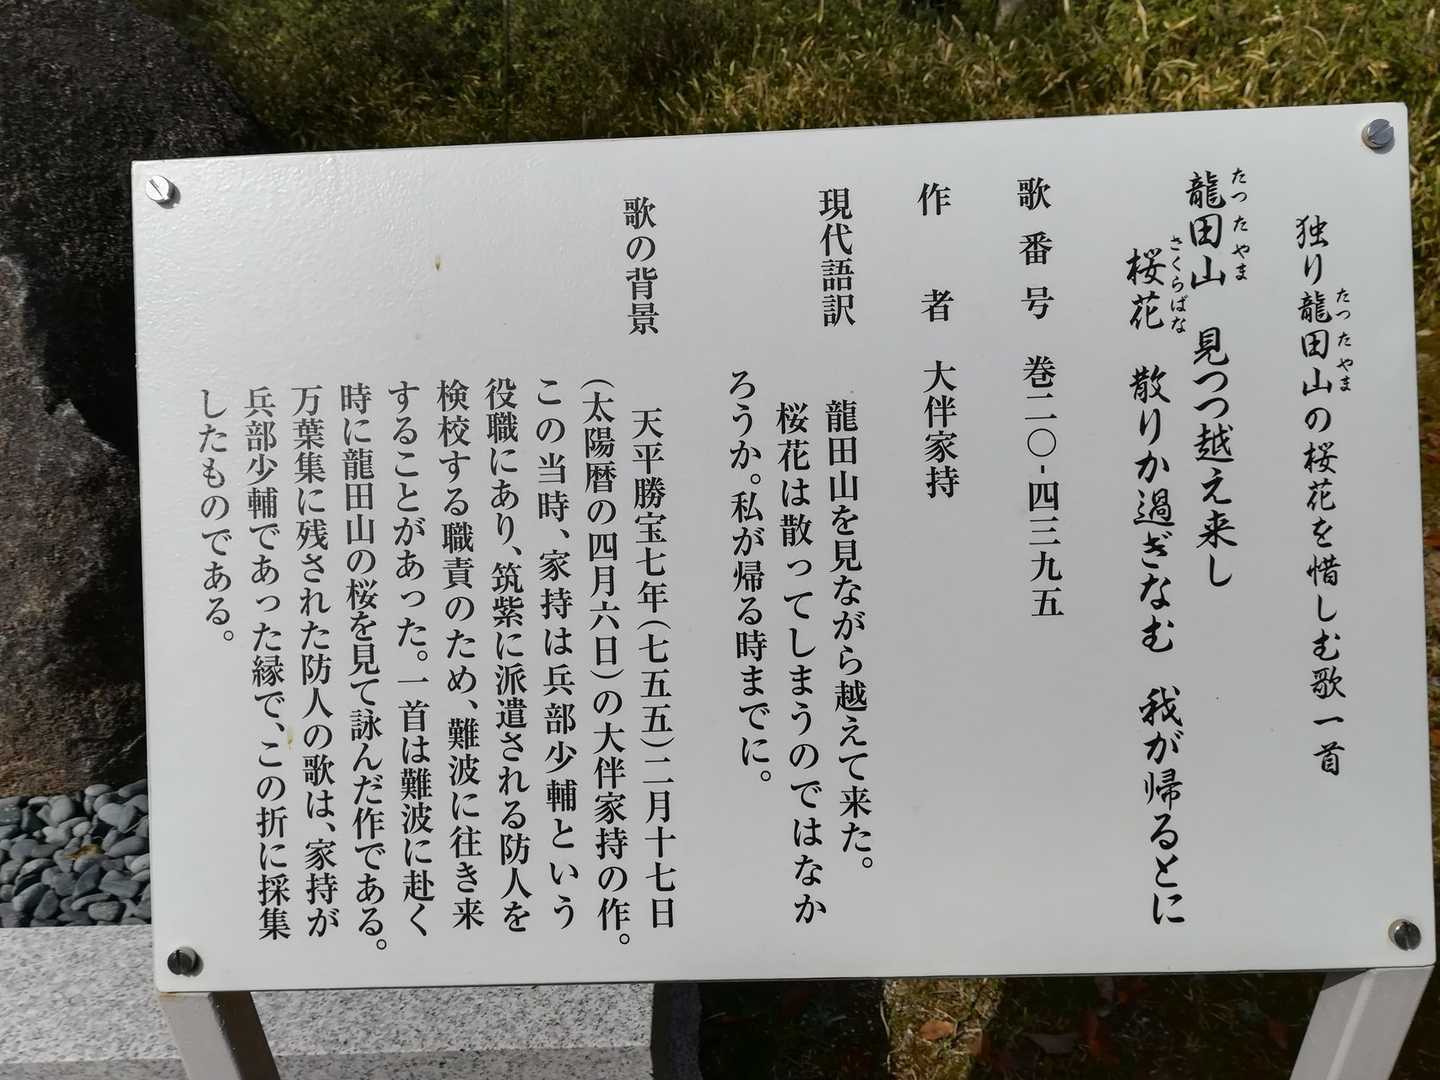 独り龍田山の桜花を惜しむ歌一首
たつたやま
龍田山 見つつ越え来し
たつたやま
桜花 散りか過ぎなむ 我が帰るとに
さくらばな
歌番号 巻二〇-四三九五
作者 大伴家持
現代語訳 龍田山を見ながら越えて来た。
桜花は散ってしまうのではなか
ろうか。私が帰る時までに。
歌の背景 天平勝宝七年(七五五)二月十七日
(太陽暦の四月六日)の大伴家持の作。
この当時、家持は兵部少輔という
役職にあり、筑紫に派遣される防人を
検校する職責のため、難波に往き来
することがあった。一首は難波に赴く
時に龍田山の桜を見て詠んだ作である。
万葉集に残された防人の歌は、家持が
兵部少輔であった縁で、この折に採集
したものである。